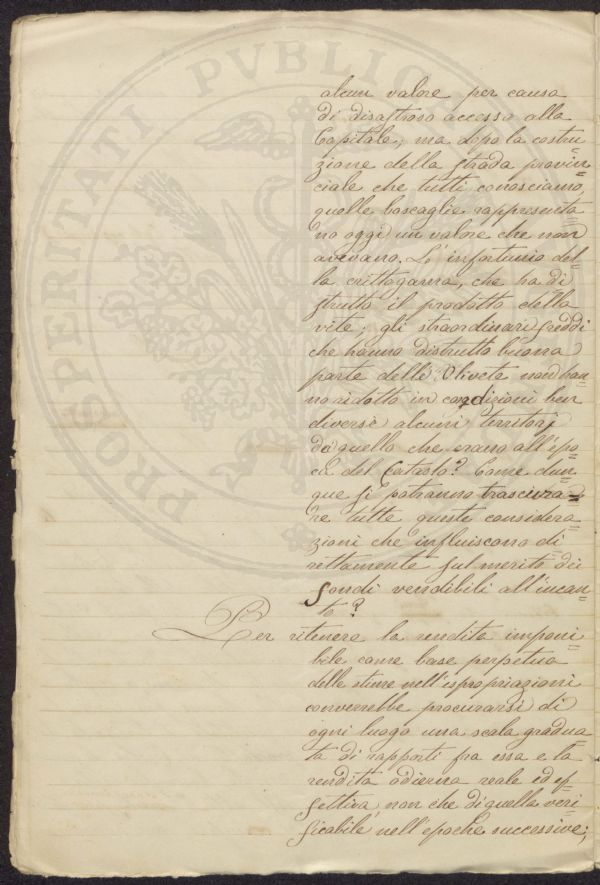 PROSPERITATI PVBLICAE
alcun valore per causa
di disastroso accesso alla
Capitale; ma dopo la costru=
zione della strada provin=
ciale che tutti conosciamo,
quelle boscaglie rappresenta=
no oggi un valore che non
avevano. L'infortunio del=
la crittogama, che ha di=
strutto il prodotto della
vite; gli straordinari freddi
che hanno distrutto buona
parte delli Oliveta non han=
no ridotto in condizioni ben
diverse alcuni territorj
da quello che erano all'epo=
ca del Catasto? Come dun=
que si potranno trascura=
re tutte queste considera=
zioni che influiscono di=
rettamente sul merito dei
fondi vendibili all'incan=
to?
Per ritenere la rendita imponi=
bile come base perpetua
delle stime nell'espropriazioni
converrebbe procurarsi di
ogni luogo una scala gradua=
ta di rapporti fra essa e la
rendita odierna reale ed ef=
fettiva, non che di quella veri=
ficabile nell'epoche successive;